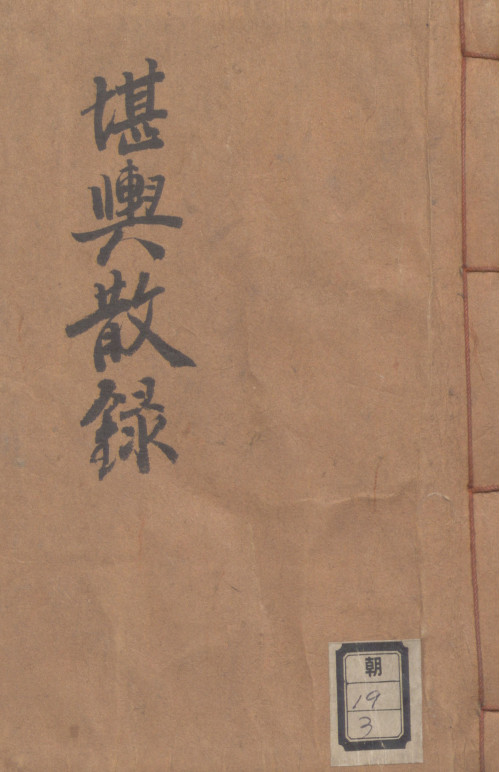 堪輿散録
朝
19
3